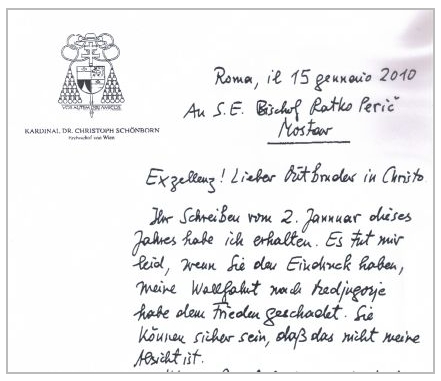 VOS AUTEM DIXI AMICOS
KARDINAL DR. CHRISTOPH SCHÖNBORN
Erzbischof von Wien
Roma, il 15 gennaio 2010
An S.E. Bischof Ratko Perić
Mostar
Exzellenz! Lieber Mitbruder in Christo
Ihr Schreiben vom 2. Jannuar dieses
Jahres habe ich erhalten. Es tut mir
leid, wenn Sie den Eindruck haben,
meine Wallfahrt nach Medjugorje
habe dem Frieden geschadet. Sie
können sicher sein, daß das nicht meine
Absicht ist.